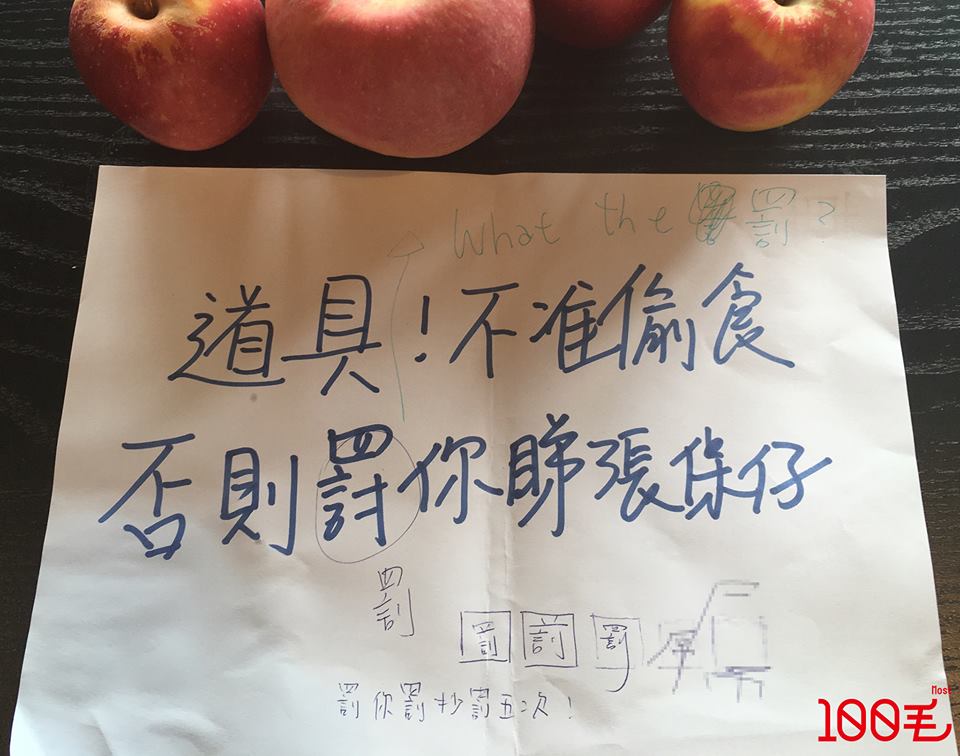 What the 罰?
道具!不准偷食
否則罸你睇張保仔
罰
罰 討 罰
罰你罰抄罰五次!
100毛
Most